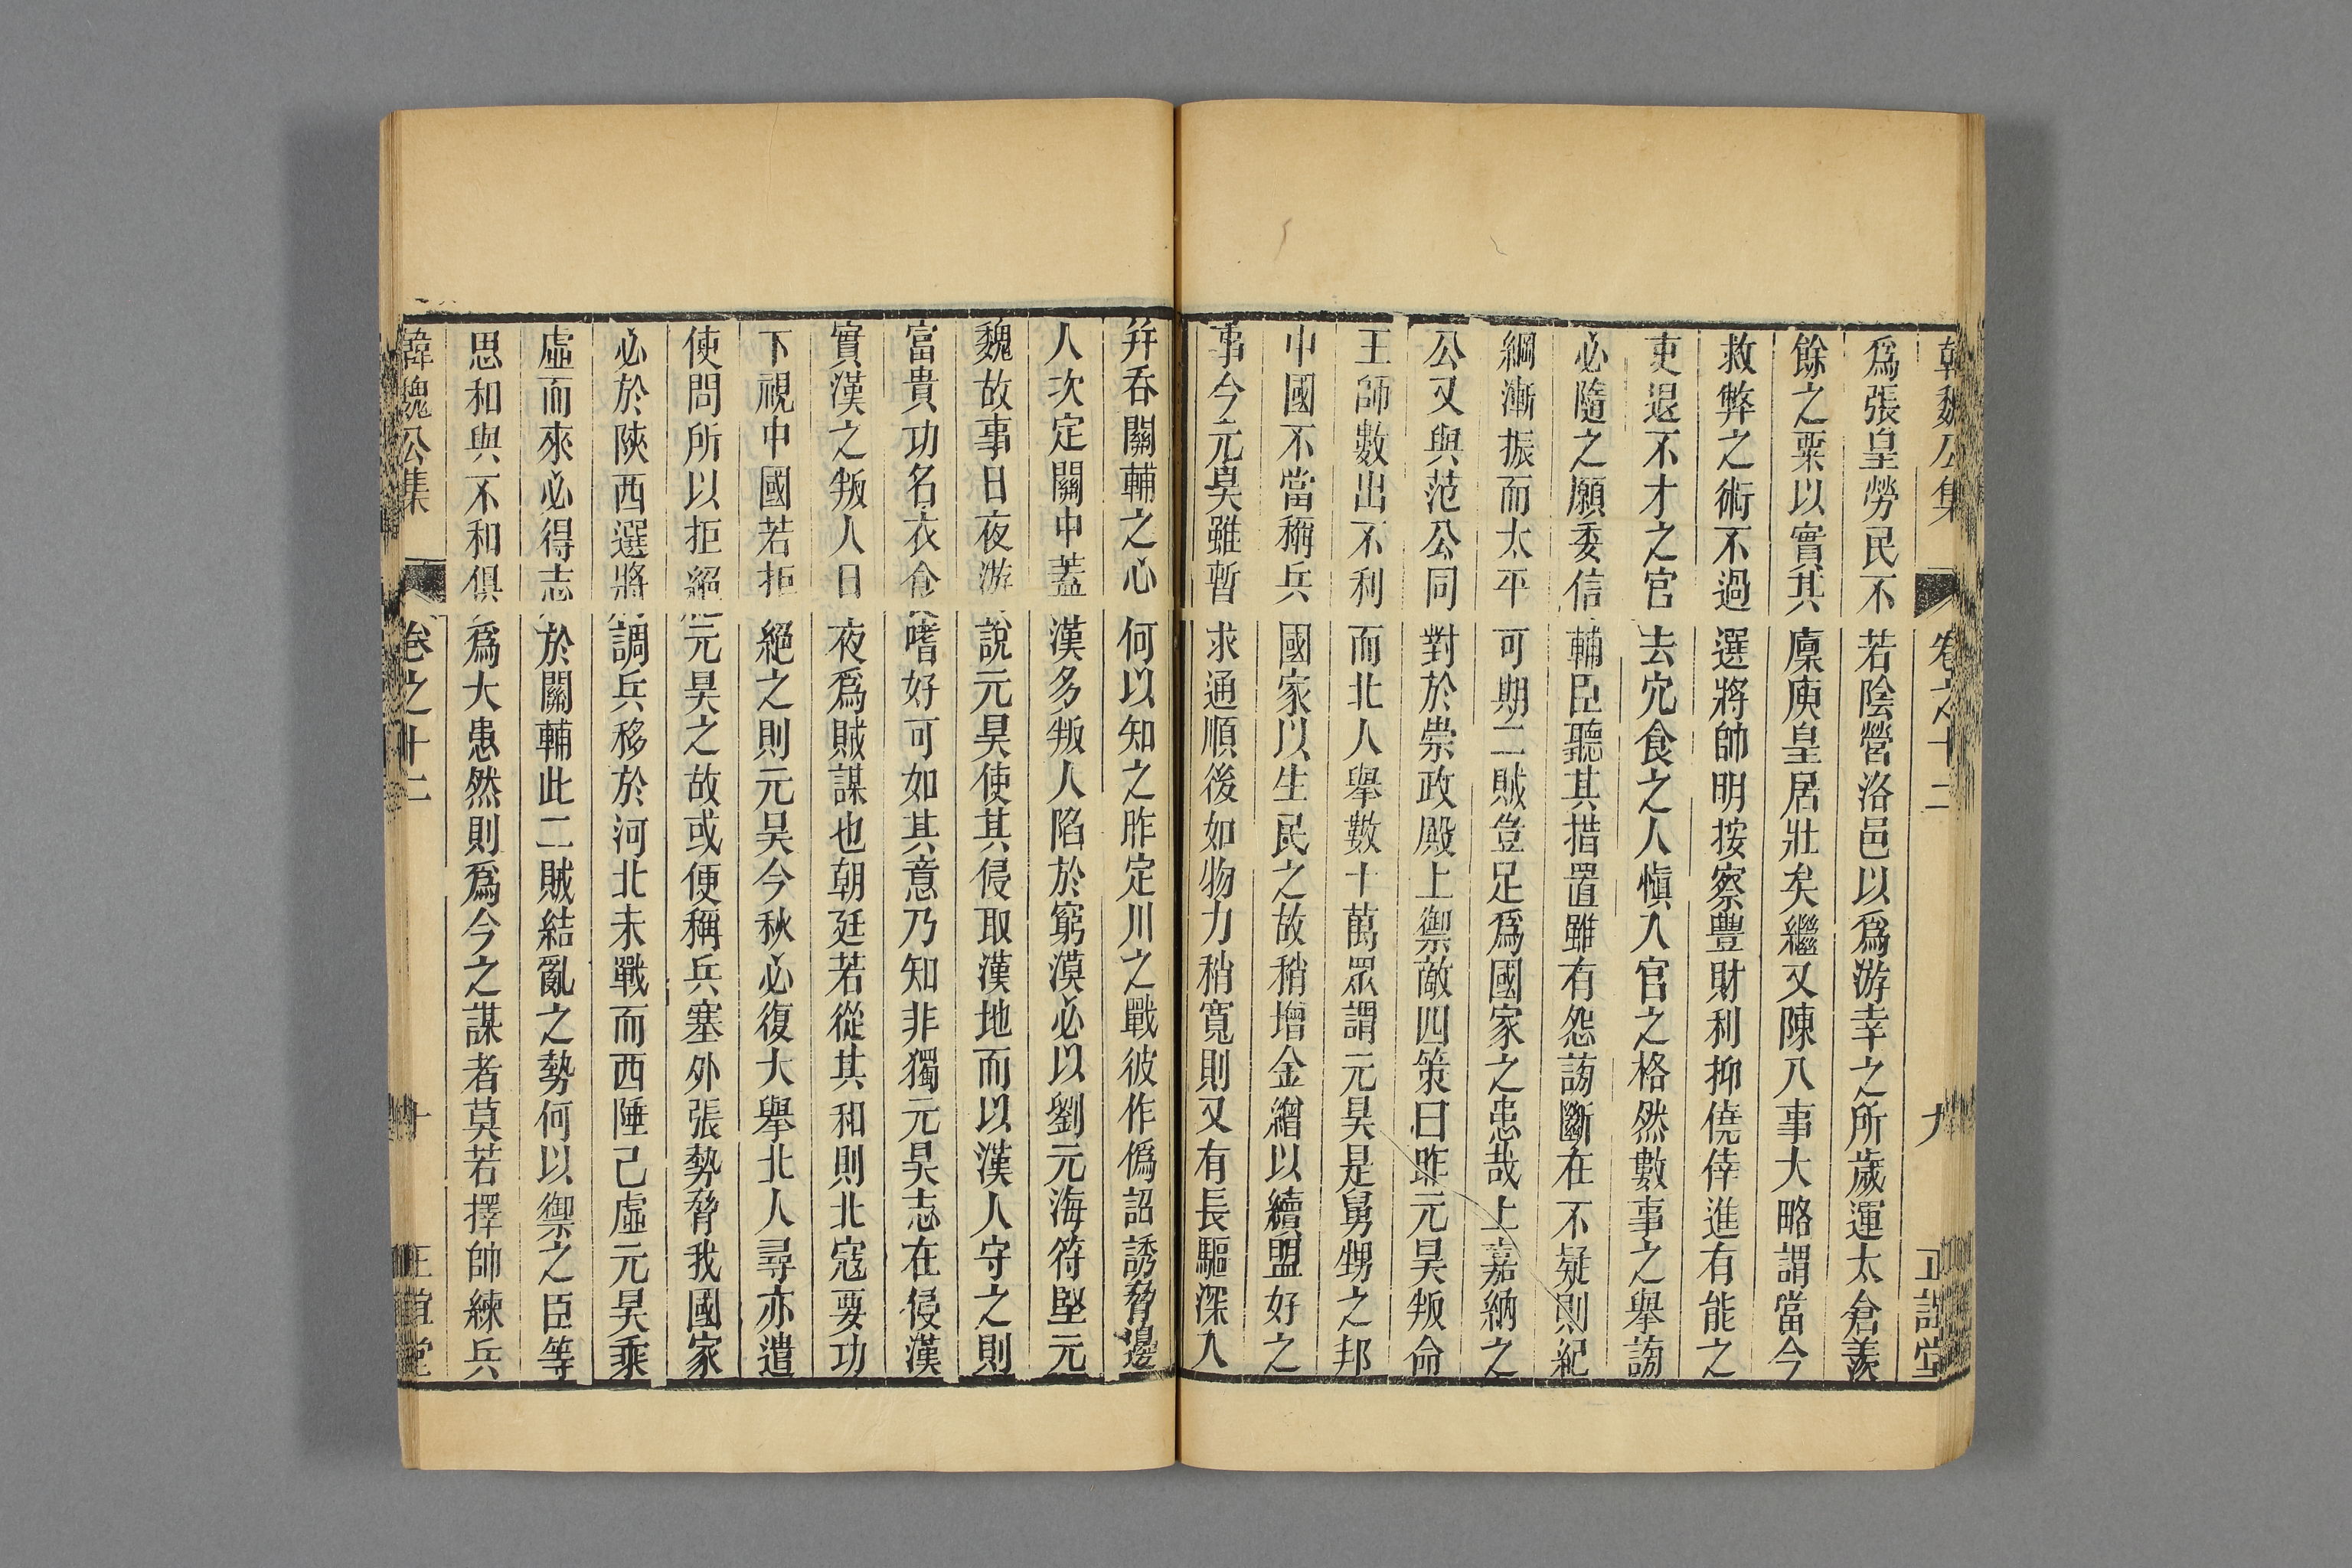 韓魏公集 卷之十二 九 正誼堂
爲張皇勞民不若陰營洛邑以爲游幸之所歲運太倉羨
餘之粟以實其廩庾皇居壯矣繼又陳八事大略謂當今
救弊之術不過選將帥明按察豐財利抑僥倖進有能之
吏退不才之官去冗食之人愼入官之格然數事之舉謗
必隨之願委信輔臣聽其措置雖有怨謗斷在不疑則紀
綱漸振而太平可期二賊豈足爲國家之患哉上嘉納之
公又與范公同對於崇政殿上禦敵四策曰昨元昊叛命
王師數出不利而北人舉數十萬眾謂元昊是舅甥之邦
中國不當稱兵國家以生民之故稍增金繒以續盟好之
事今元昊雖暫求通順後如物力稍寬則又有長驅深入
并吞關輔之心何以知之昨定川之戰彼作僞詔誘脅邊
人次定關中蓋漢多叛人陷於窮漠必以劉元海符堅元
魏故事日夜游說元昊使其侵取漢地而以漢人守之則
富貴功名衣食嗜好可如其意乃知非獨元昊志在侵漢
實漢之叛人日夜爲賊謀也朝廷若從其和則北寇要功
下視中國若拒絕之則元昊今秋必復大舉北人尋亦遣
使問所以拒絕元昊之故或便稱兵塞外張勢脅我國家
必於陝西選將調兵移於河北未戰而西陲己虛元昊乘
虛而來必得志於關輔此二賊結亂之勢何以禦之臣等
思和與不和俱爲大患然則爲今之謀者莫若擇帥練兵
韓魏公集 卷之十二 十 正誼堂